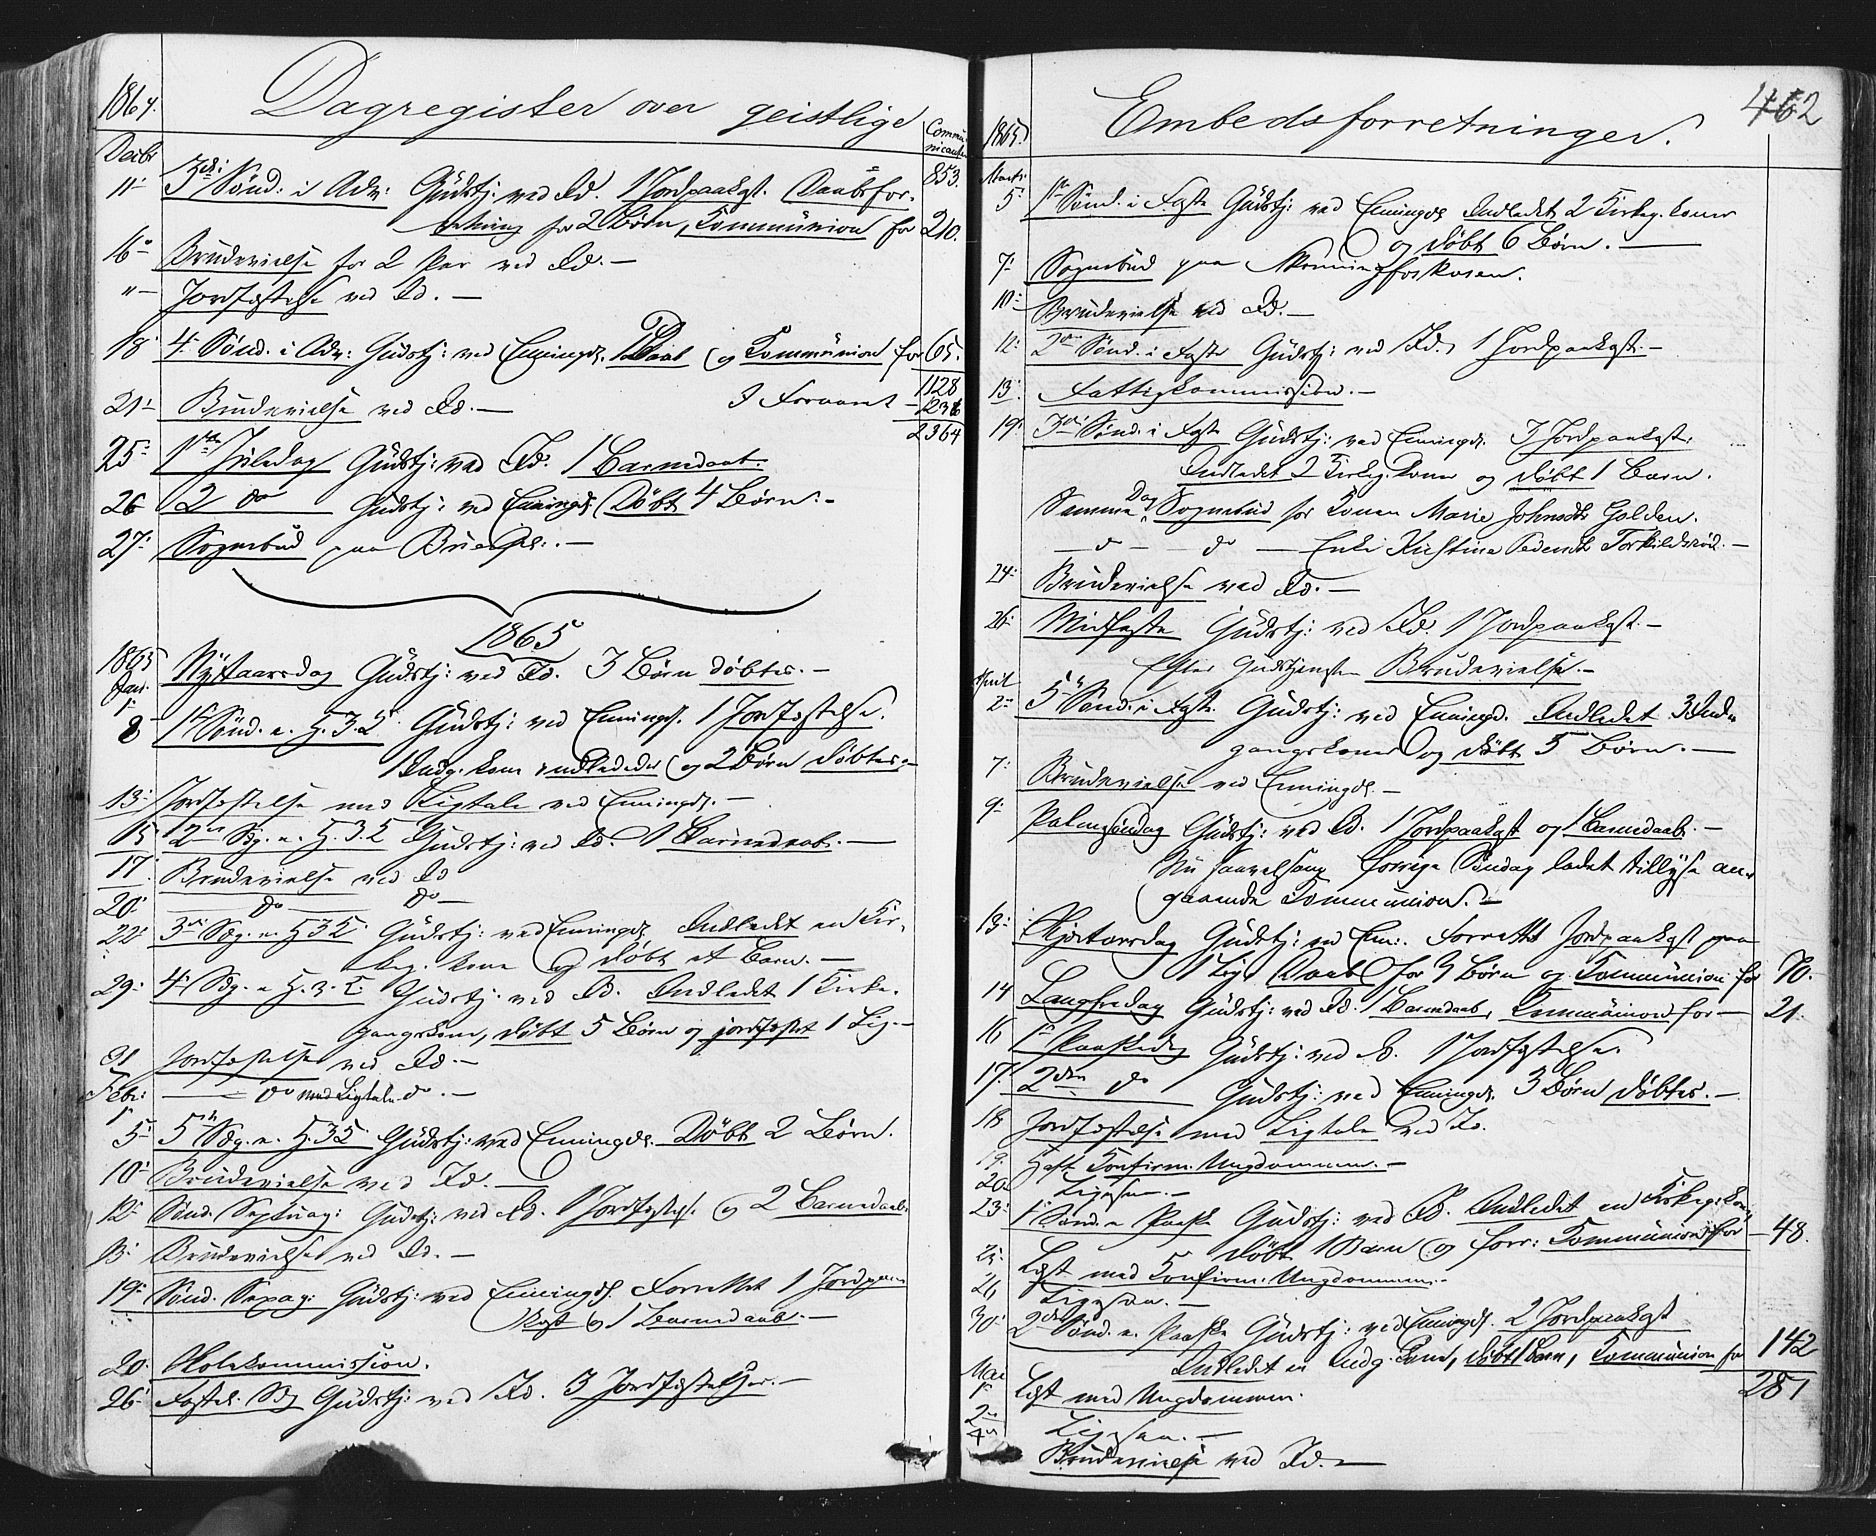 1864.
Dagregister over geistlige
Communicanter
Decbr
11 3die Sønd: i Adv: Gudstj: ved Id. 1 Jordpaakast. Daabsfor- 853.
retning for 2 Børn, Communion for 210.
16 Brudevielse for 2 Par ved Id. —
" Jordfæstelse ved Id. —
18 4. Sønd. i Adv: Gudstj: ved Enningd. 1 Daab og Communion for 65.
1128
21 Brudevielse ved Id. — I Foraaret 1236
2364
25 1ste Juledag Gudstj: ved Id. 1 Barnedaab.
26 2 do Gudstj: ved Enningd. Døbt 4 Børn. —
27 Sognebud paa —
1865
1865 Nytaarsdag Gudstj: ved Id. 3 Børn døbtes. —
Jan. 1
8 1ste Sønd. e. H. 3. K. Gudstj: ved Enningd. 1 Jordfæstelse.
1 Indg. kone indlededes og 2 Børn døbtes —
13 Jordfæstelse med Ligtale ved Enningd. —
15 2den Sdg. e. H. 3 K Gudstj: ved Id. 1 Barnedaab. —
17 Brudevielse ved Id
20 do do —
22 3die Søg. e. H 3 K. Gudstj: ved Enningd. Indledet en Kir-
keg. kone og døbt et Barn. —
29 4. Sdg. e H. 3. K. Gudstj. ved Id. Indledet 1 Kirke-
gangskone, døbt 5 Børn og jordfæstet 1 Lig. —
31 Jordfæstelse ved Id. —
Febr: 1 — do med Ligtale do. —
5 5te Søg. e. H. 3 K. Gudstj: ved Enningd. Døbt 2 Børn.
10 Brudevielse ved Id. —
12 Sønd. Septuag: Gudstj: ved Id. 1 Jordfæstelse og 2 Barnedaab.
13 Brudevielse ved Id. —
19 Sønd. Sexag: Gudstj: ved Enningd. Forrettet 1 Jordpaa-
kast og 1 Barnedaab. —
20 Skolekommission.
26 Fastel. Sdg Gudstj: ved Id. 3 Jordfæstelser. —
462
1865.
Embedsforretninger.
Marts
5 1ste Sønd. i Faste Gudstj: ved Enningd. Indledet 2 Kirkeg. koner
og døbt 6 Børn. —
7 Sognebud paa
10 Brudevielse ved Id. —
12 2den Sønd. i Faste Gudstj: ved Id. 1 Jordpaakast. —
13 Fattigkommission. —
19 3die Sønd. i Faste Gudstj: ved Enningd. 3 Jordpaakast.
Indledet 2 Kirkeg. koner og døbt 1 Barn.
Samme Dag Sognebud for Konen Marie Johnsdtr Golden.
— do — do — Enke Kirstine Pedersdtr Torkildsrød. —
24 Brudevielse ved Id. —
26 Midfaste Gudstj: ved Id. 1 Jordpaakast. —
Efter Gudstjenesten Brudevielse. —
April
2 5te Sønd. i Faste Gudstj: ved Enningd. Indledet 3 Ind-
gangskoner og døbt 5 Børn. —
7 Brudevielse ved Enningd. —
9 Palmesøndag Gudstj: ved Id. 1 Jordpaakast og 1 Barnedaab. —
Nu saavelsom forrige Søndag ladet tillyse an-
gaaende Communion. —
13 Skjærtorsdag Gudstj: ved Enn. Forrettet Jordpaakast paa
1 Lig, Daab for 3 Børn og Communion for 70.
14 Langfredag Gudstj: ved Id. 1 Barnedaab, Communion for — 21.
16 1ste Paaskedag Gudstj: ved Id. 1 Jordfæstelse.
17 2den do Gudstj: ved Enningd. 3 Børn døbtes. —
18 Jordfæstelse med Ligtale ved Id.
19. Confirm. Ungdommen. —
20 Ligesaa. —
23 1ste Sønd. e Paaske Gudstj: ved Id. Indledet en Kirkeg: kone,
døbt 1 Barn og forr: Communion for — 48.
25 Læst med Confirm. Ungdommen. —
26 Ligesaa. —
30 2den Sønd. e. Paaske Gudstj: ved Enningd. 2 Jordpaakast
Indledet en Indg. kone, døbt 1 Barn, Communion for 142
281
Mai
1 Læst med Ungdommen.
2 Ligesaa. —
4 Brudevielse ved Id. —